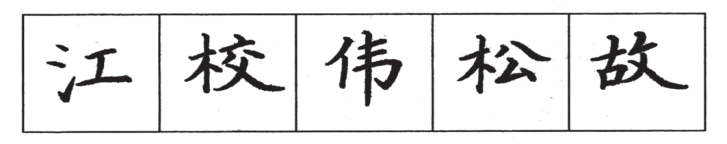 江校伟松故